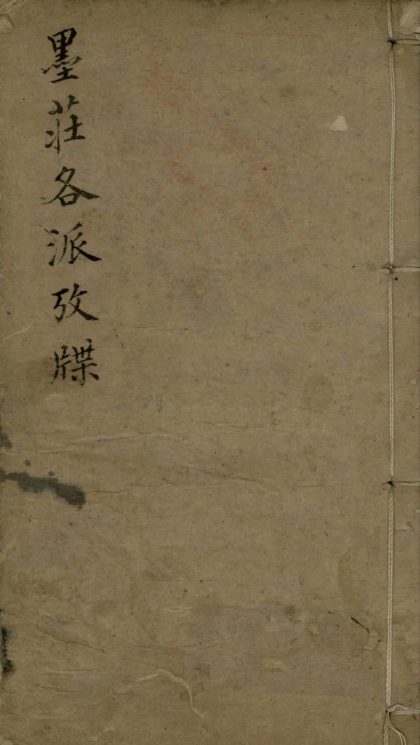 墨莊各派攷牒